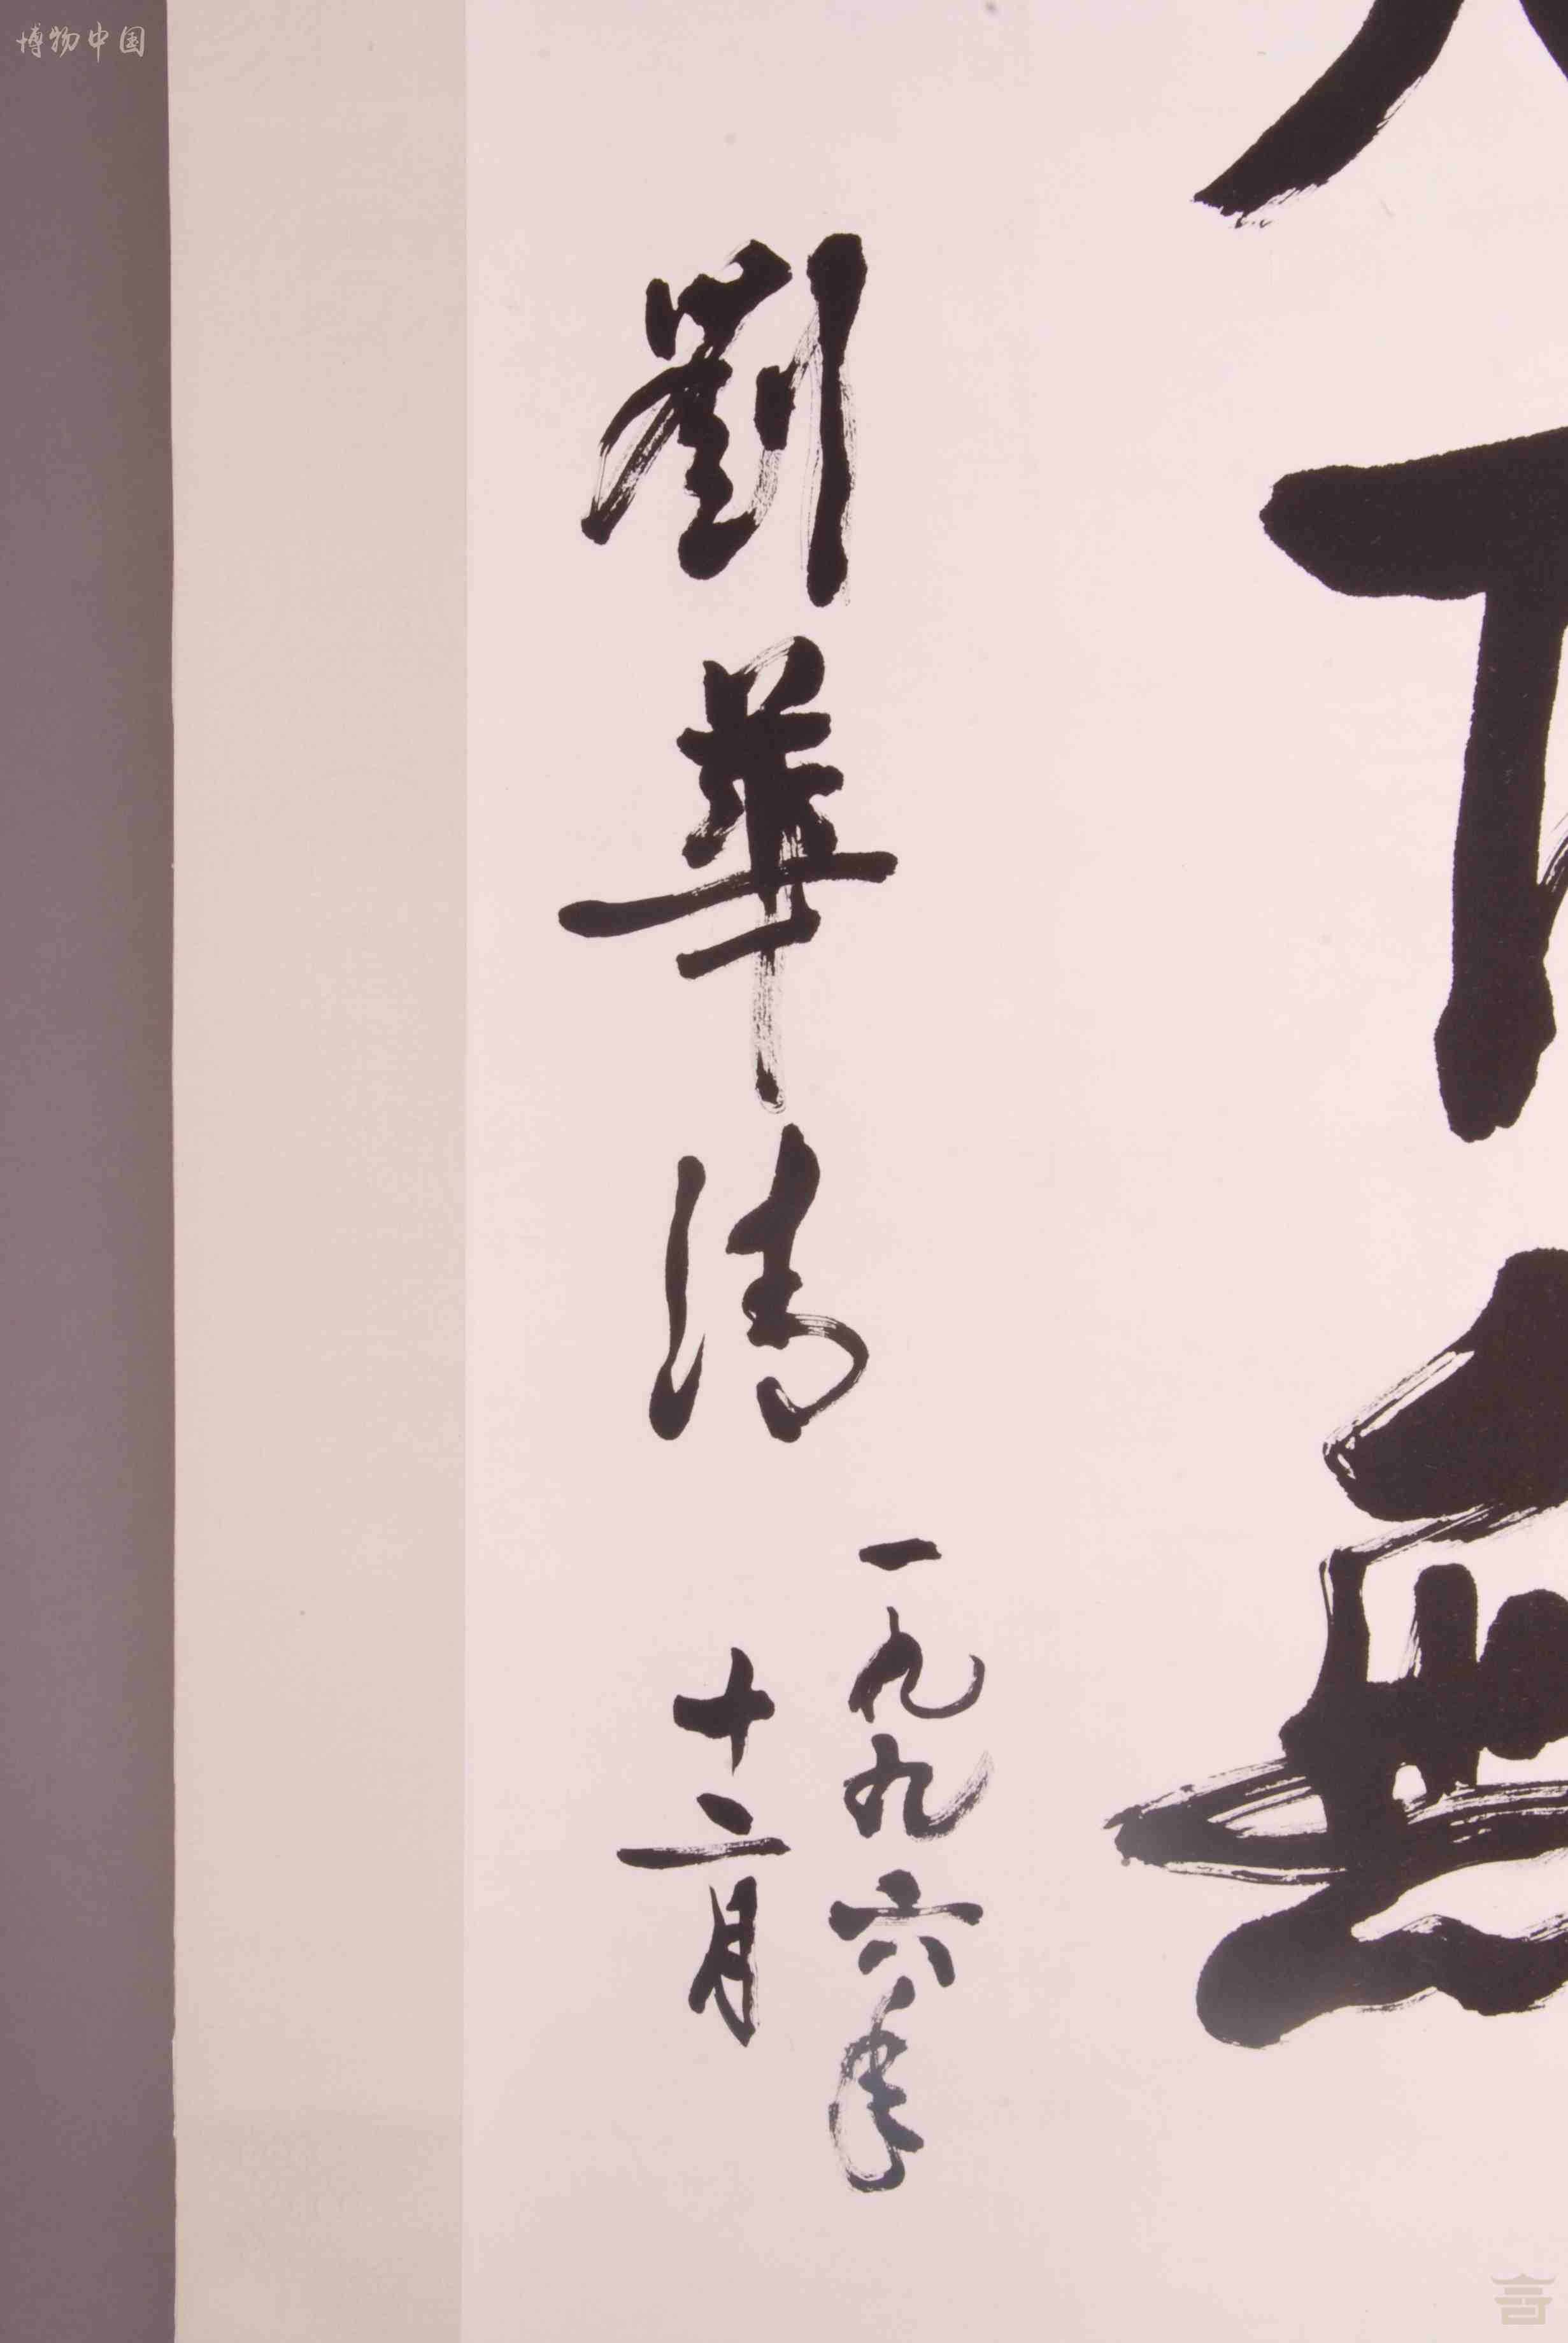 下無
劉華清
一九九六年
十二月
博物中国